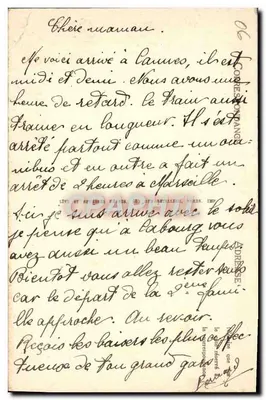 06
Chère maman.
Me voici arrivé à Cannes, il est
midi et demi. Nous avons une
heure de retard. Le train aussi
traine en longueur. Il s'est
arrêté partout comme un om-
nibus et en outre a fait un
arrêt de 2 heures à Marseille.
Ici je suis arrivé avec le soleil
je pense qu'à Cabourg vous
avez aussi un beau temps.
Bientôt vous allez rester seuls
car le départ de la 2ème fami-
lle approche. Au revoir.
Reçois les baisers les plus affec-
tueux de ton grand gars
CORRESPONDANCE
ADRESSE